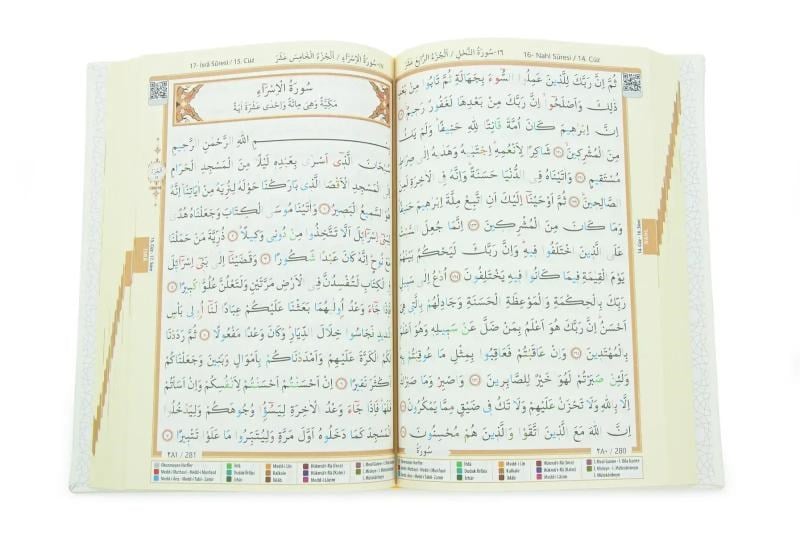 ١٦-سُورَةُ النَّحْلِ / اَلْجُزْءُ الرَّابِعَ عَشَرَ 16- Nahl Sûresi / 14. Cüz
ثُمَّ اِنَّ رَبَّكَ لِلَّذ۪ينَ عَمِلُوا السُّوٓءَ بِجَهَالَةٍ ثُمَّ تَابُوا مِنْ بَعْدِ
ذٰلِكَ وَاَصْلَحُٓوا اِنَّ رَبَّكَ مِنْ بَعْدِهَا لَغَفُورٌ رَح۪يمٌ ﴿١١٩﴾
اِنَّ اِبْرٰه۪يمَ كَانَ اُمَّةً قَانِتًا لِلّٰهِ حَن۪يفًا وَلَمْ يَكُ
مِنَ الْمُشْرِك۪ينَ ﴿١٢٠﴾ شَاكِرًا لِاَنْعُمِهِ اِجْتَبٰيهُ وَهَدٰيهُ اِلٰى صِرَاطٍ
مُسْتَق۪يمٍ ﴿١٢١﴾ وَاٰتَيْنَاهُ فِي الدُّنْيَا حَسَنَةً وَاِنَّهُ فِي الْاٰخِرَةِ لَمِنَ
الصَّالِح۪ينَ ﴿١٢٢﴾ ثُمَّ اَوْحَيْنَٓا اِلَيْكَ اَنِ اتَّبِعْ مِلَّةَ اِبْرٰه۪يمَ حَن۪يفًا
وَمَا كَانَ مِنَ الْمُشْرِك۪ينَ ﴿١٢٣﴾ اِنَّمَا جُعِلَ السَّبْتُ
عَلَى الَّذ۪ينَ اخْتَلَفُوا ف۪يهِ وَاِنَّ رَبَّكَ لَيَحْكُمُ بَيْنَهُمْ
يَوْمَ الْقِيٰمَةِ ف۪يمَا كَانُوا ف۪يهِ يَخْتَلِفُونَ ﴿١٢٤﴾ اُدْعُ اِلٰى سَب۪يلِ
رَبِّكَ بِالْحِكْمَةِ وَالْمَوْعِظَةِ الْحَسَنَةِ وَجَادِلْهُمْ بِالَّت۪ي هِيَ
اَحْسَنُ اِنَّ رَبَّكَ هُوَ اَعْلَمُ بِمَنْ ضَلَّ عَنْ سَب۪يلِه۪ وَهُوَ اَعْلَمُ
بِالْمُهْتَد۪ينَ ﴿١٢٥﴾ وَاِنْ عَاقَبْتُمْ فَعَاقِبُوا بِمِثْلِ مَا عُوقِبْتُمْ بِه۪
وَلَئِنْ صَبَرْتُمْ لَهُوَ خَيْرٌ لِلصَّابِر۪ينَ ﴿١٢٦﴾ وَاصْبِرْ وَمَا صَبْرُكَ
اِلَّا بِاللّٰهِ وَلَا تَحْزَنْ عَلَيْهِمْ وَلَا تَكُ ف۪ي ضَيْقٍ مِمَّا يَمْكُرُونَ ﴿١٢٧﴾
اِنَّ اللّٰهَ مَعَ الَّذ۪ينَ اتَّقَوْا وَالَّذ۪ينَ هُمْ مُحْسِنُونَ ﴿١٢٨﴾
سُورَةُ ٢٨٠ / 280
17- İsrâ Sûresi / 15. Cüz ١٧-سُورَةُ الْاِسْرَٓاءِ / اَلْجُزْءُ الْخَامِسَ عَشَرَ
سُورَةُ الْاِسْرَٓاءِ
مَكِّيَّةٌ وَهِيَ مِائَةٌ وَاِحْدٰى عَشْرَةَ اٰيَةً
اللّٰهِ الرَّحْمٰنِ الرَّح۪يمِ
سُبْحَانَ الَّذ۪ٓي اَسْرٰى بِعَبْدِه۪ لَيْلًا مِنَ الْمَسْجِدِ الْحَرَامِ
اِلَى الْمَسْجِدِ الْاَقْصَا الَّذ۪ي بَارَكْنَا حَوْلَهُ لِنُرِيَهُ مِنْ اٰيَاتِنَا اِنَّهُ
هُوَ السَّم۪يعُ الْبَص۪يرُ ﴿١﴾ وَاٰتَيْنَا مُوسَى الْكِتَابَ وَجَعَلْنَاهُ هُدًى
لِبَن۪ٓي اِسْرَٓائ۪لَ اَلَّا تَتَّخِذُوا مِنْ دُون۪ي وَك۪يلًا ﴿٢﴾ ذُرِّيَّةَ مَنْ حَمَلْنَا
مَعَ نُوحٍ اِنَّهُ كَانَ عَبْدًا شَكُورًا ﴿٣﴾ وَقَضَيْنَٓا اِلٰى بَن۪ٓي اِسْرَٓائ۪لَ
فِي الْكِتَابِ لَتُفْسِدُنَّ فِي الْاَرْضِ مَرَّتَيْنِ وَلَتَعْلُنَّ عُلُوًّا كَب۪يرًا ﴿٤﴾
فَاِذَا جَٓاءَ وَعْدُ اُو۫لٰيهُمَا بَعَثْنَا عَلَيْكُمْ عِبَادًا لَنَٓا اُو۬ل۪ي بَأْسٍ
شَد۪يدٍ فَجَاسُوا خِلَالَ الدِّيَارِ وَكَانَ وَعْدًا مَفْعُولًا ﴿٥﴾ ثُمَّ رَدَدْنَا
لَكُمُ الْكَرَّةَ عَلَيْهِمْ وَاَمْدَدْنَاكُمْ بِاَمْوَالٍ وَبَن۪ينَ وَجَعَلْنَاكُمْ
اَكْثَرَ نَف۪يرًا ﴿٦﴾ اِنْ اَحْسَنْتُمْ اَحْسَنْتُمْ لِاَنْفُسِكُمْ وَاِنْ اَسَأْتُمْ
فَلَهَا فَاِذَا جَٓاءَ وَعْدُ الْاٰخِرَةِ لِيَسُٓؤُ۫ا وُجُوهَكُمْ وَلِيَدْخُلُوا
الْمَسْجِدَ كَمَا دَخَلُوهُ اَوَّلَ مَرَّةٍ وَلِيُتَبِّرُوا مَا عَلَوْا تَتْب۪يرًا ﴿٧﴾
٢٨١ / 281